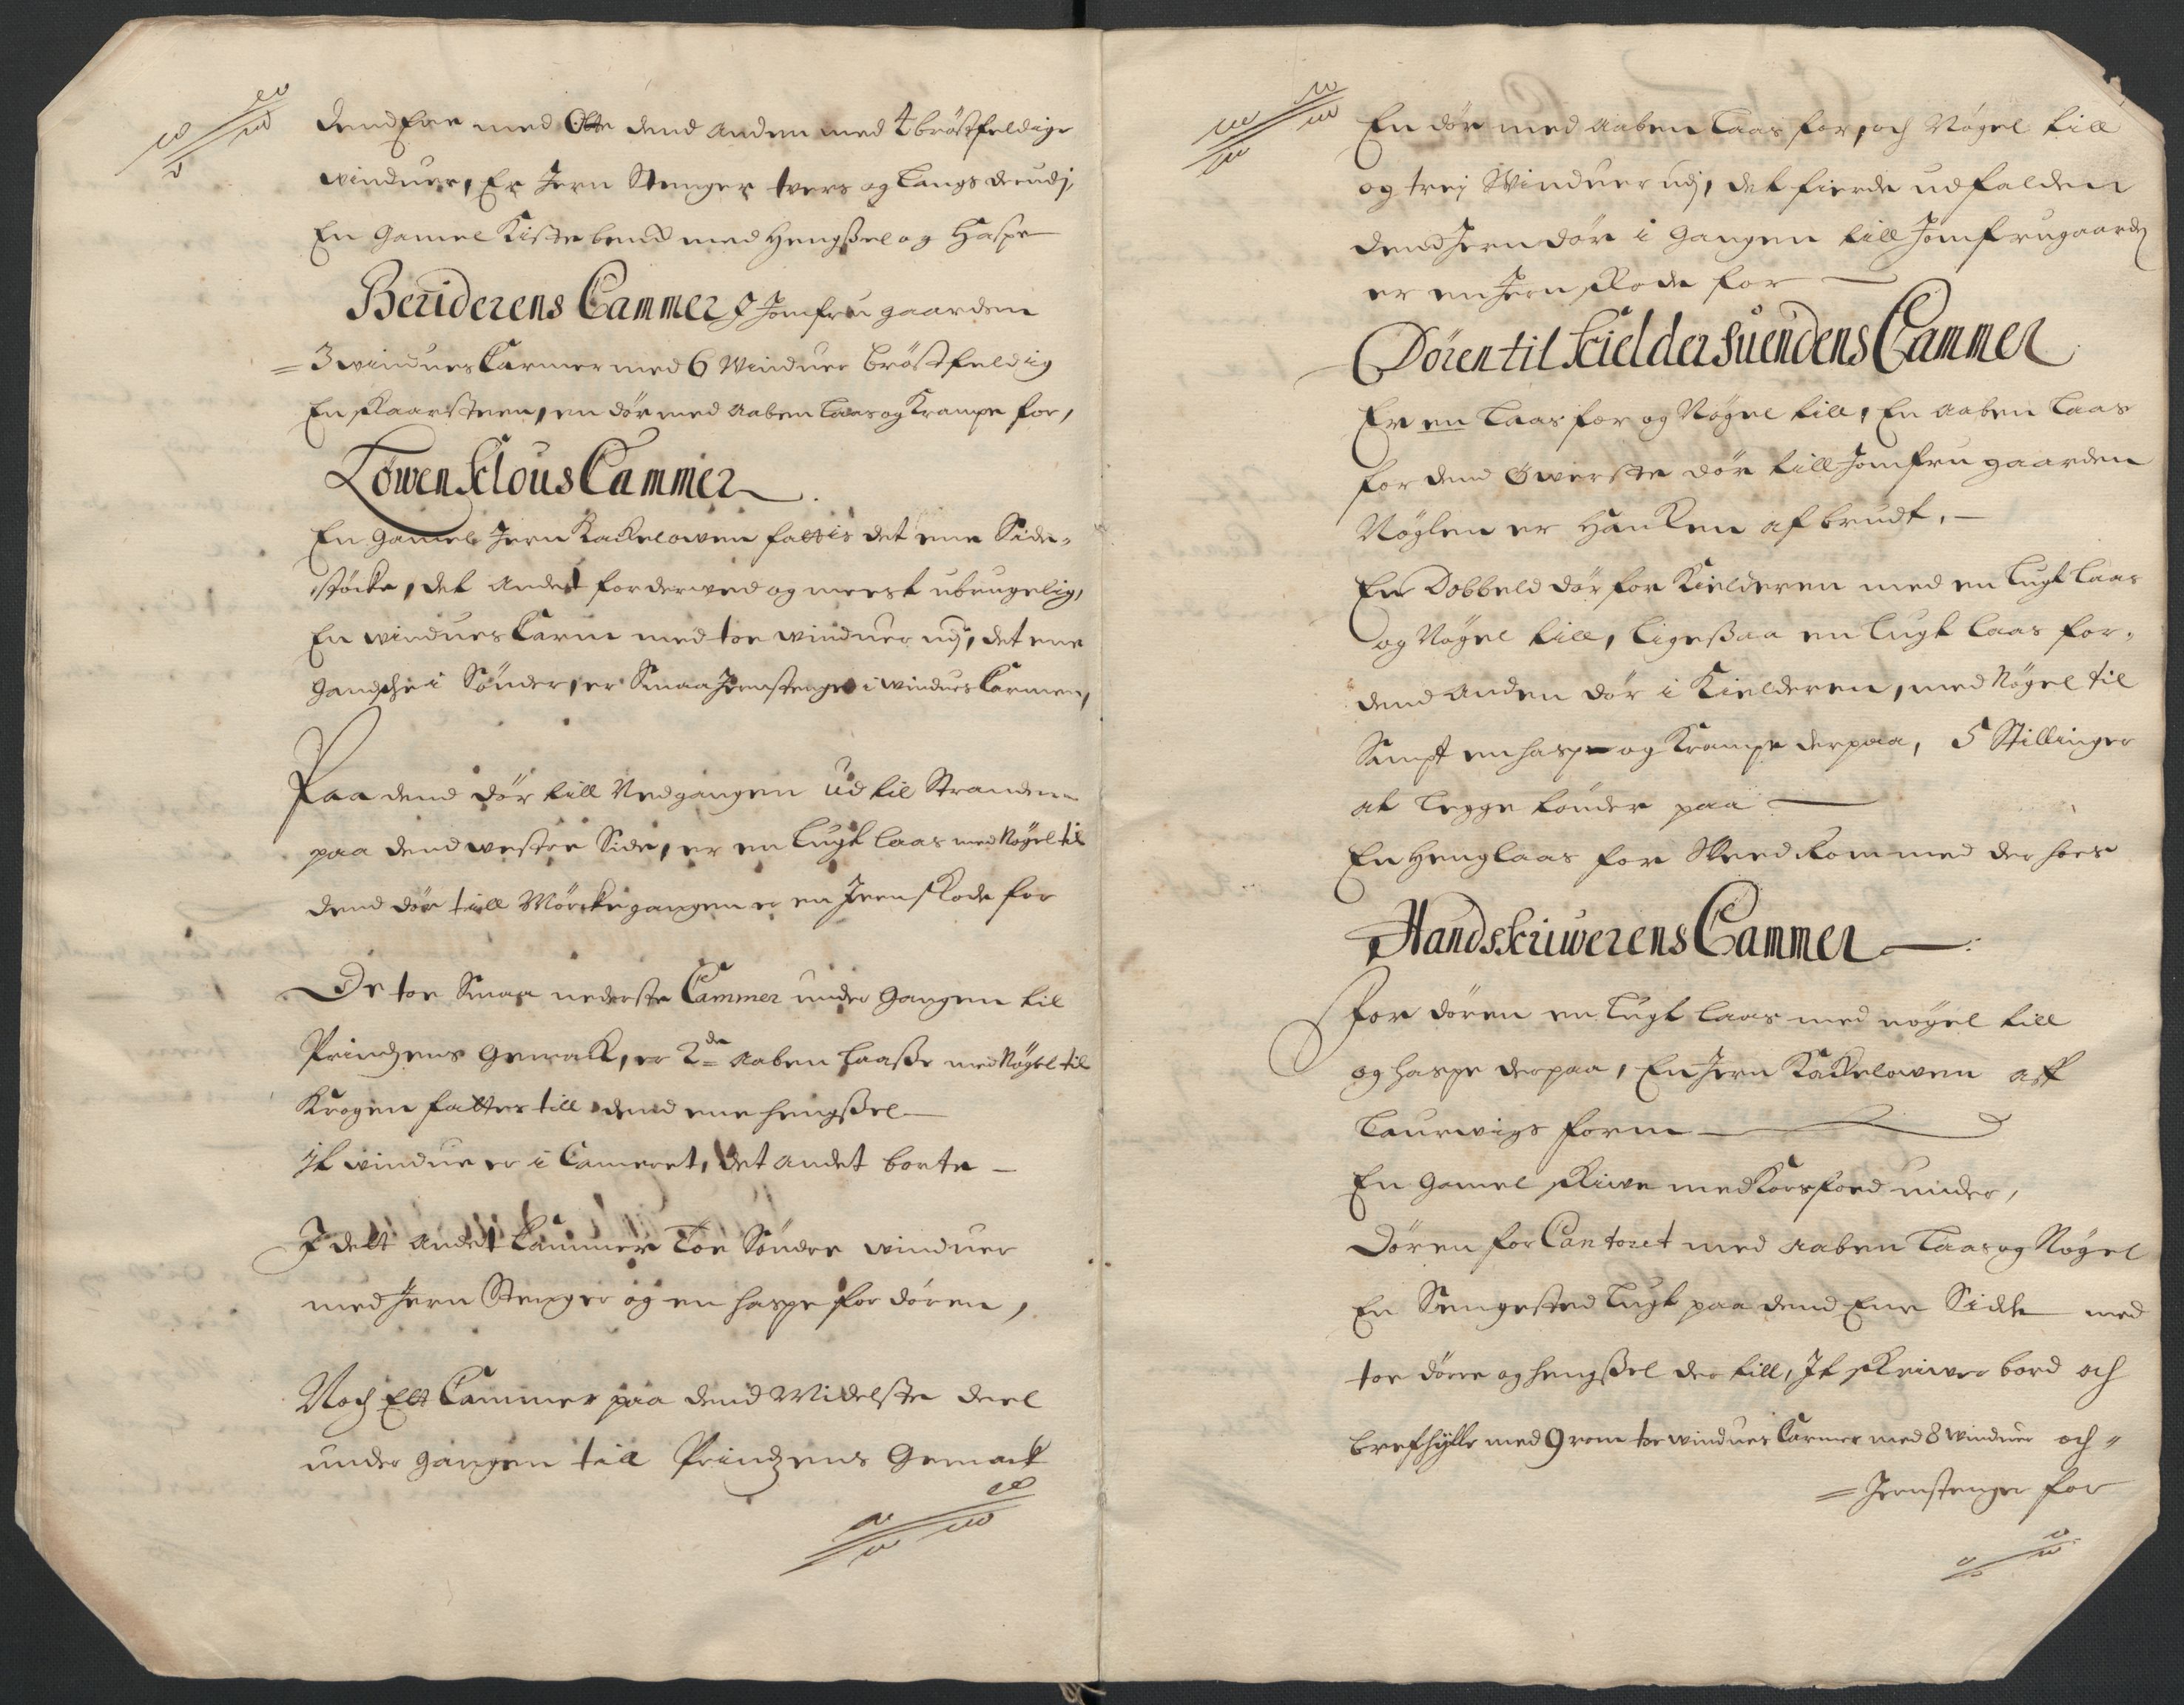 dend Ene med Otte dend anden med 4 brøstfeldige
winduer, Er Jern Stenger tvers og Langs derudj,
En Gamel Kiste bend med Hengßel og Haspe
Beriderens Cammer J Jomfru gaarden
3 windues Carmer med 6 Winduer brøstfeldig
En skaarsteen, en dør med aaben Laas og Krampe for,
Löwenklous Cammer
En Gamel Jern Kackelowen fattis det ene Side-
støcke, det andet forderved og meest ubrugelig,
En windues Carm med toe winduer udj, det ene
gandsche i Sønder, er Smaa Jernstenger i windues Carmen,
Paa dend dør till Nedgangen ud til Stranden
paa dend westre Side, er en Lugt laas med Nøgel til
dend dør till Mørcke gangen er en Jern skode for
De toe Smaa nederste Cammer under Gangen til
Prindzens Gemack, er 2de aaben Laaße med Nøgel til
Krogen fattes till dend ene hengßel
It windue er i Cameret, det andet borte
J dett andet Cammer Toe Söndre winduer
med Jern Stenger og en haspe for døren,
Noch Ett Cammer paa dend Midelste deel
under gangen till Prindzens Gemack
En dør med aaben Laas for, och Nøgel till
og trej Winduer udj, det fierde udfalden
dend Jern dør i Gangen till Jomfrugaarden
er en Jern skode for
Dören til Kielder Suendens Cammer
Er en Laas for og Nøgel till, En aaben Laas
for dend Öwerste dör till Jomfru gaarden
Nøglen er Hancken afbrudt.
En Dobbeld dör for Kielderen med en Lugt Laas
og Nøgel till, Ligeßaa en Lugt Laas for
dend anden dör i Kielderen, med Nøgel til
Sampt en haspe og Krampe derpaa, 5 Stillinger
at Legge tönder paa
En Henglaas for Weed Rommed der hoes
Handskriwerens Cammer
For dören en Lugt Laas med nøgel till
og haspe derpaa, En Jern Kackelowen aff
Laurwigs form
En Gamel skiwe med Korsfoed under,
Dören for Cantoret med aaben Laas og Nøgel
En Sengested Lugt paa dend Ene Side med
toe dörre og hengßel der till, It skriwer bord och
brefhylle med 9 rom toe windues Carmer med 8 winduer och
Jernstenger for